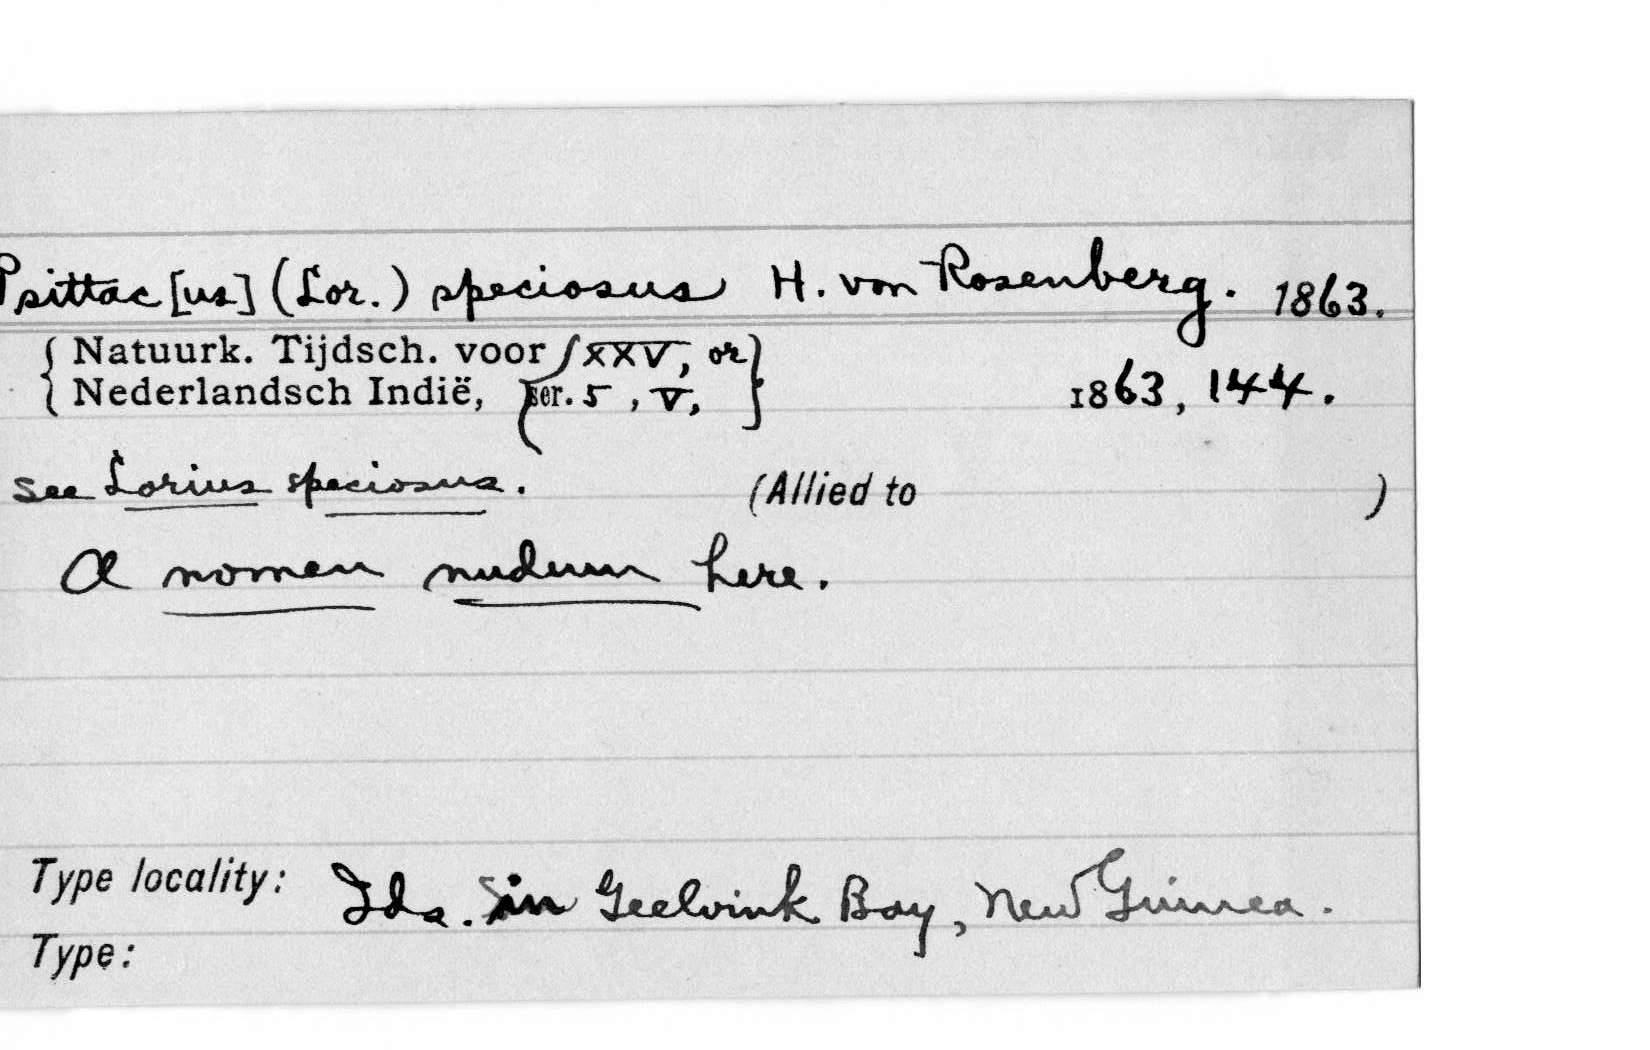 Psittac[us] (Lor.) speciosus H. von Rosenberg. 1863.
{ Natuurk. Tijdsch. voor { XXV, or }
{ Nederlandsch Indië, { ser. 5, V, } 1863, 144.
see Lorius speciosus. (Allied to )
A nomen nudum here.
Type locality: Ids. in Geelvink Bay, New Guinea.
Type: